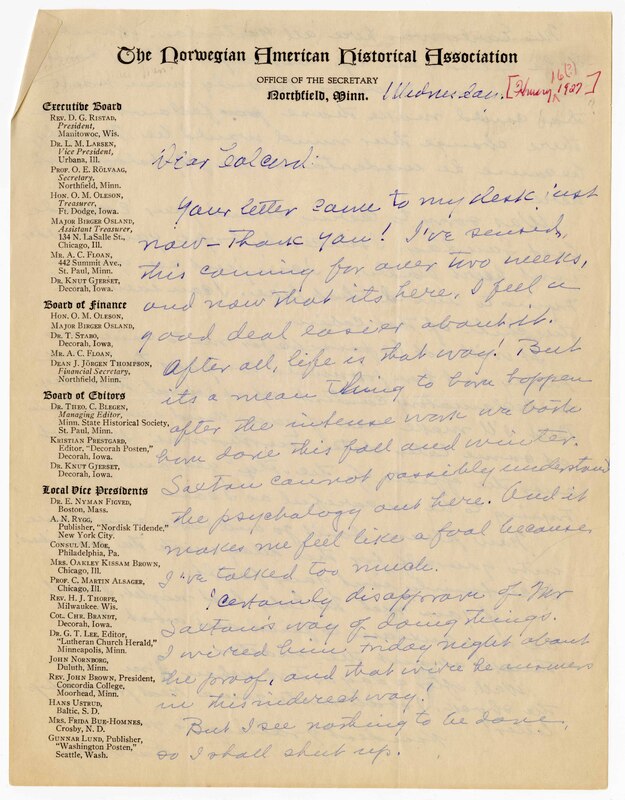 The Norwegian American Historical Association
OFFICE OF THE SECRETARY
Northfield, Minn.
Wednesday. [ 16(?) 1927]
Executive Board
REV. D. G. RISTAD,
President,
Manitowoc, Wis.
DR. L. M. LARSEN,
Vice President,
Urbana, Ill.
PROF. O. E. RÖLVAAG,
Secretary,
Northfield, Minn.
HON. O. M. OLESON,
Treasurer,
Ft. Dodge, Iowa.
MAJOR BIRGER OSLAND,
Assistant Treasurer,
134 N. LaSalle St.,
Chicago, Ill.
MR. A. C. FLOAN,
442 Summit Ave.,
St. Paul, Minn.
DR. KNUT GJERSET,
Decorah, Iowa.
Board of Finance
HON. O. M. OLESON,
MAJOR BIRGER OSLAND,
DR. T. STABO,
Decorah, Iowa.
MR. A. C. FLOAN,
DEAN J. JÖRGEN THOMPSON,
Financial Secretary,
Northfield, Minn.
Board of Editors
DR. THEO. C. BLEGEN,
Managing Editor,
Minn. State Historical Society,
St. Paul, Minn.
KRISTIAN PRESTGARD,
Editor, "Decorah Posten,"
Decorah, Iowa.
DR. KNUT GJERSET,
Decorah, Iowa.
Local Vice Presidents
DR. E. NYMAN FIGVED,
Boston, Mass.
A. N. RYGG,
Publisher, "Nordisk Tidende,"
New York City.
CONSUL M. MOE,
Philadelphia, Pa.
MRS. OAKLEY KISSAM BROWN,
Chicago, Ill.
PROF. C. MARTIN ALSAGER,
Chicago, Ill.
REV. H. J. THORPE,
Milwaukee. Wis.
COL. CHR. BRANDT,
Decorah, Iowa.
DR. G. T. LEE, Editor,
"Lutheran Church Herald,"
Minneapolis, Minn.
JOHN NORNBORG,
Duluth, Minn.
REV. JOHN BROWN, President,
Concordia College,
Moorhead, Minn.
HANS USTRUD,
Baltic, S. D.
MRS. FRIDA BUE-HOMNES,
Crosby, N. D.
GUNNAR LUND, Publisher,
"Washington Posten,"
Seattle, Wash.
Dear Colcord:
Your letter came to my desk just
now — Thank you! I've sensed,
this coming for over two weeks,
and now that its here, I feel a
good deal easier about it.
After all, life is that way! But
its a mean thing to have happen
after the intense work we both
have done this fall and winter.
Saxton cannot possibly understand
the psychology out here. And it
makes me feel like a fool because
I've talked too much.
I certainly disapprove of Mr
Saxton's way of doing things.
I wired him Friday night about
the proof, and that wire he answers
in this indirect way!
But I see nothing to be done,
so I shall shut up.